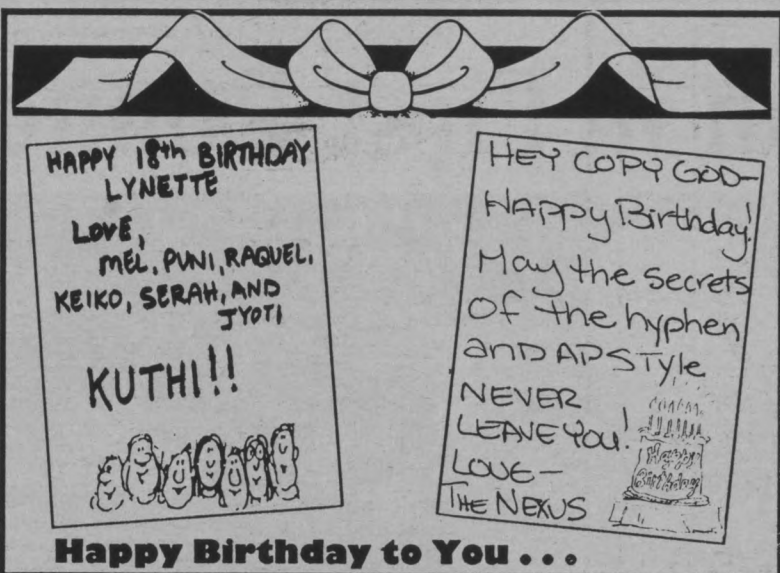 HAPPY 18th BIRTHDAY
LYNETTE
LOVE,
MEL, PUNI, RAQUEL,
KEIKO, SERAH, AND
JYOTI
KUTHI!!
HEY COPY GOD-
HAppy Birthday!
May the secrets
OF the hyphen
anD AP STyle
NEVER
LEAVE YOU!
LOVE-
THE NEXUS
Happy
Birthday
Happy Birthday to You . . .